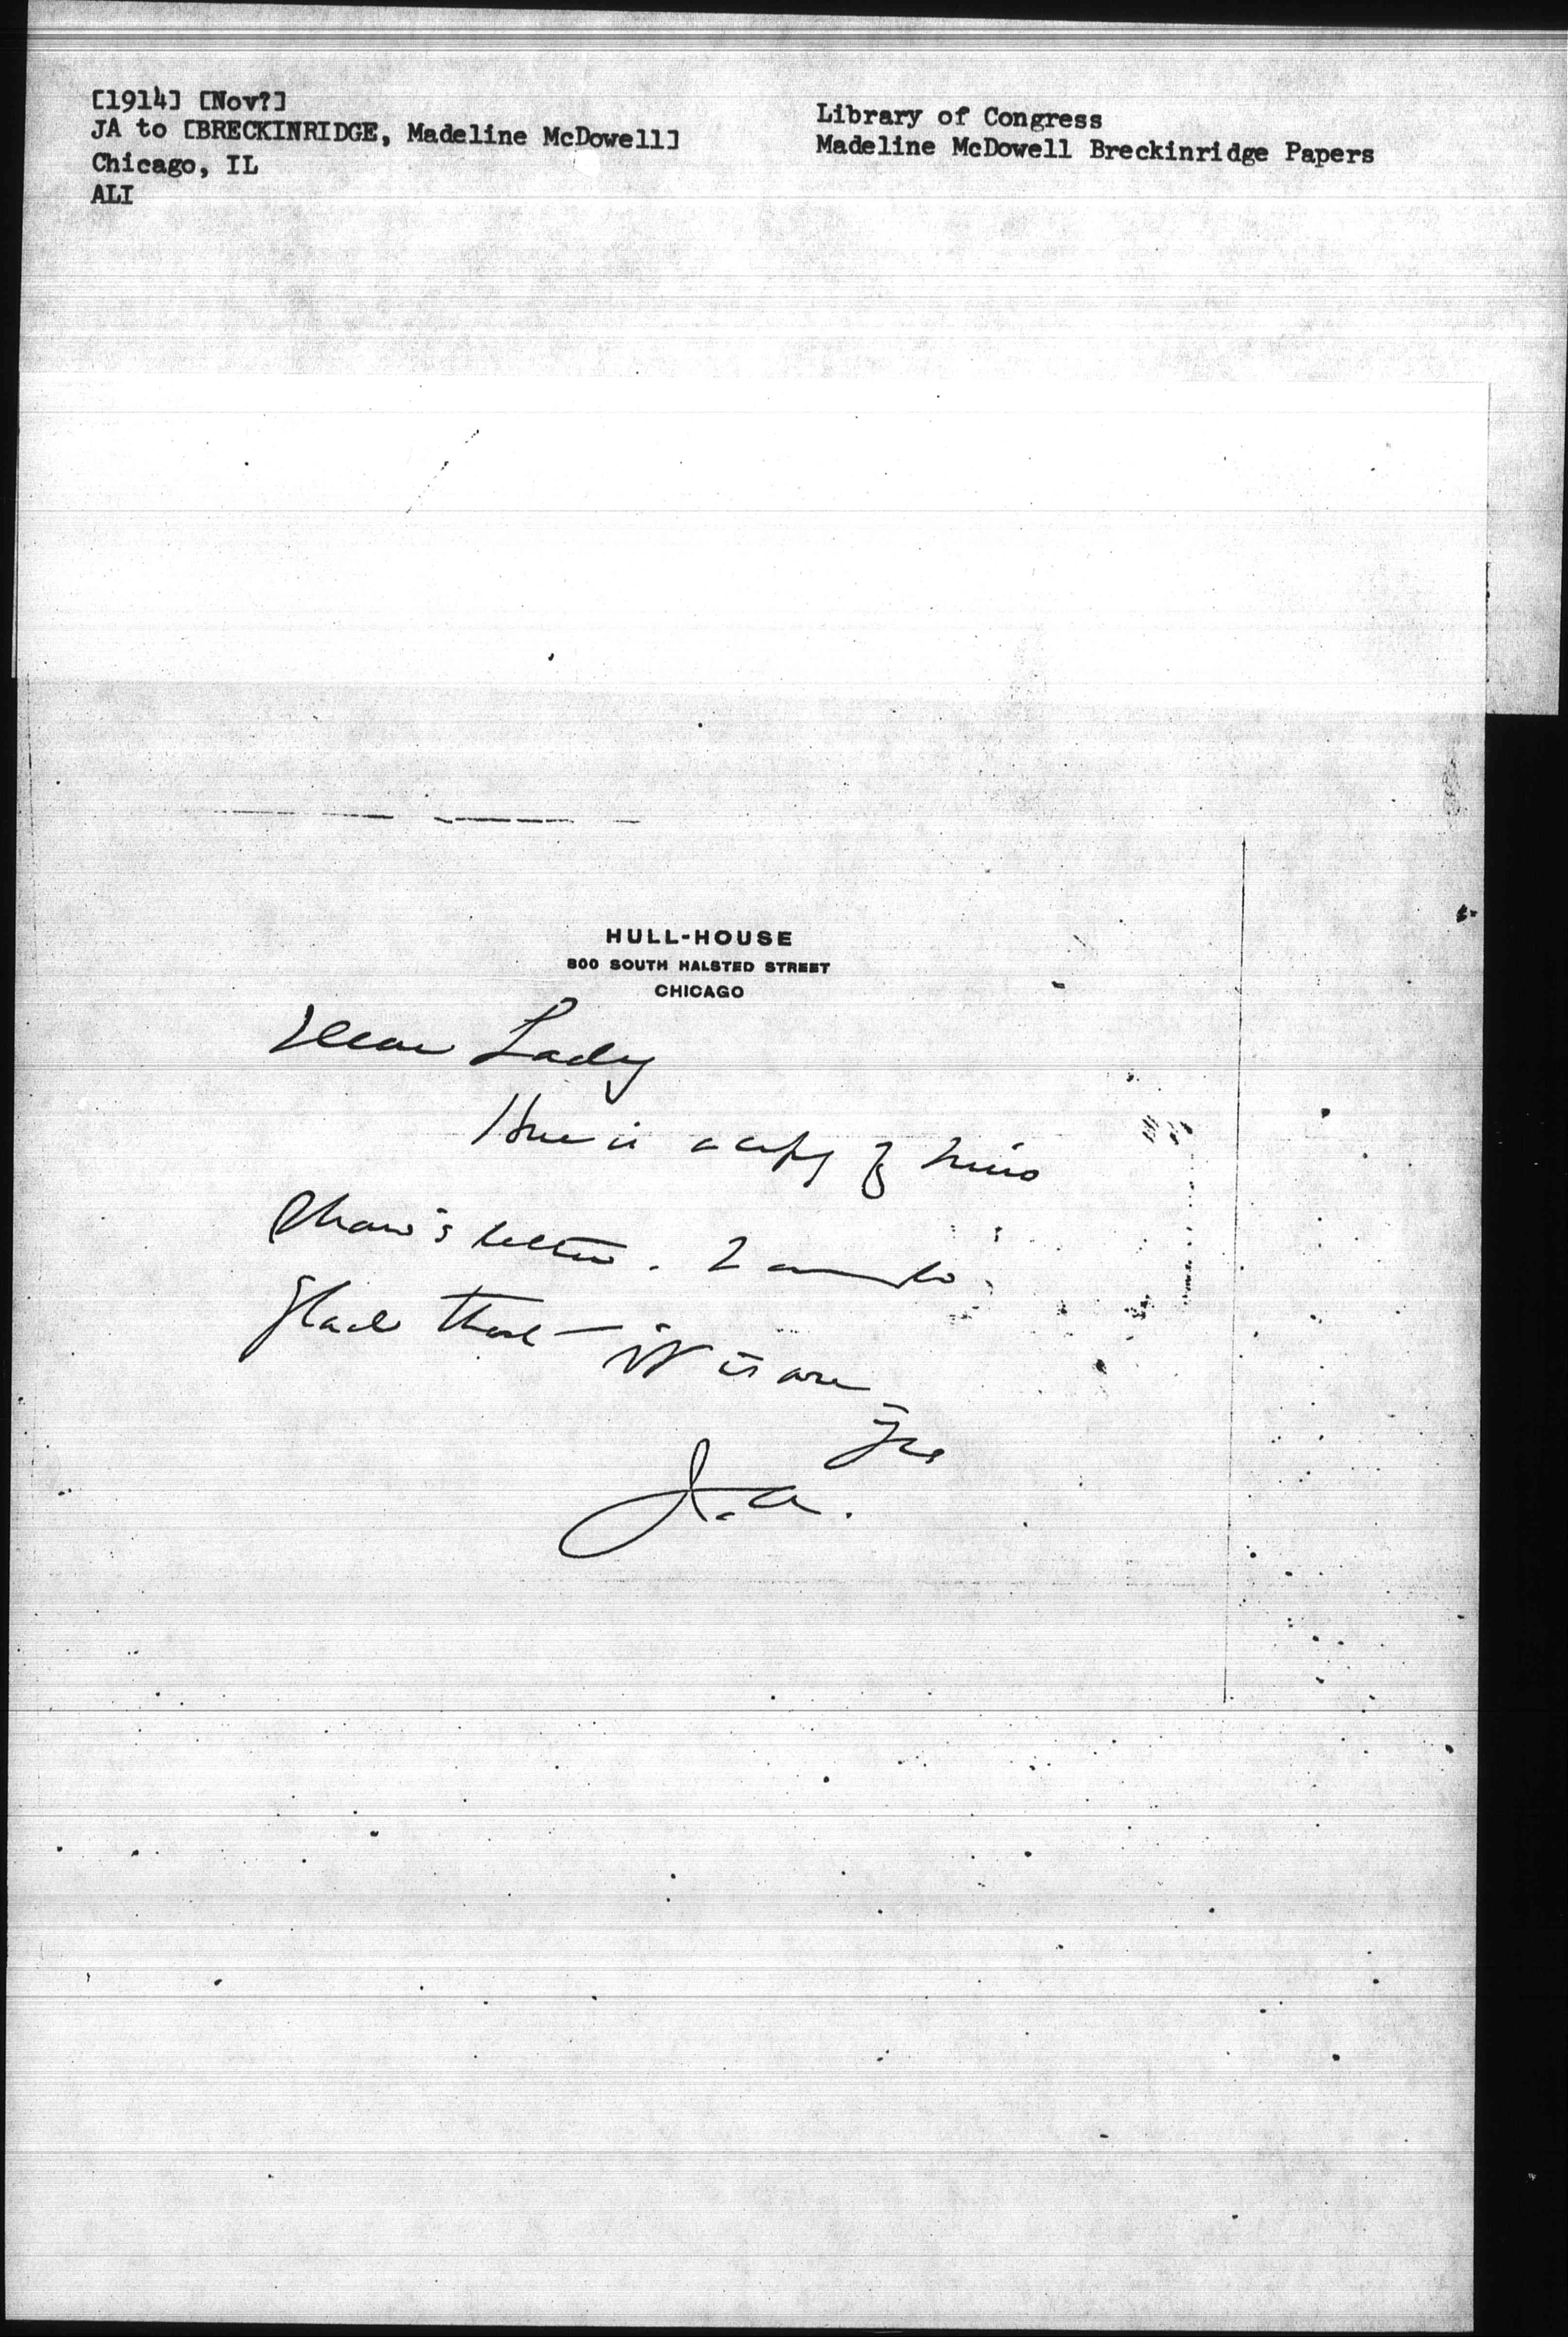 [1914] [Nov?]
JA to [BRECKINRIDGE, Madeline McDowell]
Chicago, IL
ALI
Library of Congress
Madeline McDowell Breckinridge Papers
HULL-HOUSE
800 SOUTH HALSTED STREET
CHICAGO
Dear Lady
Here is a copy of Miss
Shaw's letter. I am so
glad that it is over
Yrs
J. A.